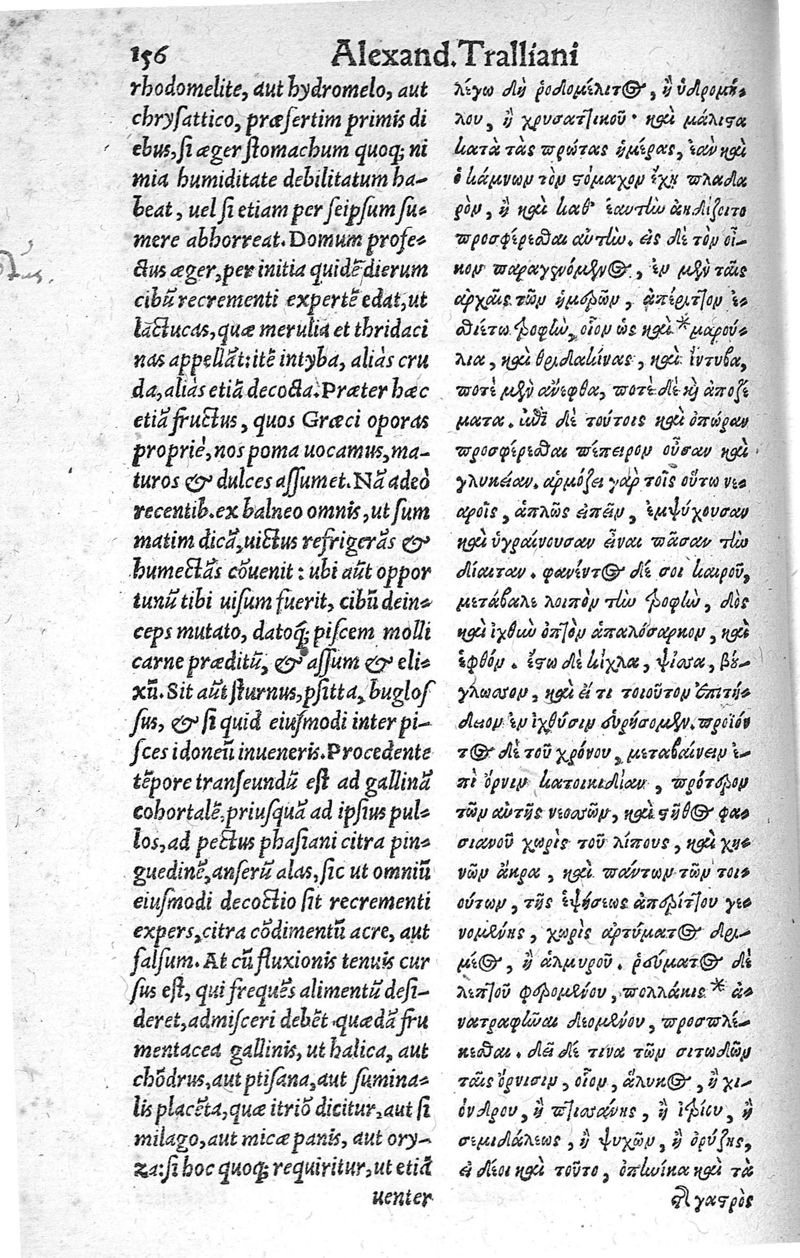 156 Alexand. Tralliani
rhodomelite, aut hydromelo, aut
chrysattico, præsertim primis di
ebus, si æger stomachum quoq; ni
mia humiditate debilitatum ha-
beat, uel si etiam per seipsum su-
mere abhorreat. Domum profe-
ctus æger, per initia quidẽ dierum
cibũ recrementi expertẽ edat, ut
lactucas, quæ merulia et thridaci
nas appellãt: itẽ intyba, aliàs cru
da, aliàs etiã decocta. Præter hæc
etiã fructus, quos Græci oporas
propriè, nos poma uocamus, ma-
turos & dulces assumet. Nã adeò
recentib. ex balneo omnis, ut sum
matim dicã, uictus refrigerãs &
humectãs cõuenit: ubi aũt oppor
tunũ tibi uisum fuerit, cibũ dein-
ceps mutato, datoq; piscem molli
carne præditũ, & assum & eli-
xũ. Sit aũt sturnus, psitta, buglos
sus, & si quid eiusmodi inter pi-
sces idoneũ inueneris. Procedente
tẽpore transeundũ est ad gallinã
cohortalẽ, priusquã ad ipsius pul-
los, ad pectus phasiani citra pin-
guedinẽ, anserũ alas, sic ut omniũ
eiusmodi decoctio sit recrementi
expers, citra cõdimentũ acre, aut
salsum. At cũ fluxionis tenuis cur
sus est, qui frequẽs alimentũ desi-
deret, admisceri debẽt quædã fru
mentacea gallinis, ut halica, aut
chõdrus, aut ptisana, aut sumina-
lis placẽta, quæ itriõ dicitur, aut si
milago, aut micæ panis, aut ory-
za: si hoc quoq; requiritur, ut etiã
uenter
λέγω δὴ ῥοδομέλιτος, ἢ ὑδρομή-
λου, ἢ χρυσαττικοῦ· καὶ μάλιστα
κατὰ τὰς πρώτας ἡμέρας, ἐὰν καὶ
ὁ κάμνων τὸν στόμαχον ἔχῃ πλαδα
ρὸν, ἢ καὶ καθ' ἑαυτὴν ἀηδίζοιτο
προσφέρεσθαι αὐτήν. εἰς δὲ τὸν οἶ-
κον παραγενόμενος, ἐν μὲν ταῖς
ἀρχαῖς τῶν ἡμερῶν, ἀπέριττον ἐ-
σθιέτω τροφὴν, οἷον ὡς καὶ *μαρού-
λια, καὶ θριδακίνας, καὶ ἴντυβα,
ποτὲ μὲν ἄνεφθα, ποτὲ δὲ καὶ ἀποζέ
ματα. ἐπὶ δὲ τούτοις καὶ ὀπώραν
προσφέρεσθαι πέπειρον οὖσαν καὶ
γλυκεῖαν. ἁρμόζει γὰρ τοῖς οὕτω νε-
αροῖς, ἁπλῶς εἰπεῖν, ἐμψύχουσαν
καὶ ὑγραίνουσαν εἶναι πᾶσαν τὴν
δίαιταν. φανέντος δέ σοι καιροῦ,
μετάβαλε λοιπὸν τὴν τροφὴν, δὸς
καὶ ἰχθὺν ὀπτὸν ἁπαλόσαρκον, καὶ
ἑφθόν. ἔστω δὲ κίχλα, ψίσσα, βού-
γλωσσον, καὶ εἴ τι τοιοῦτον ἐπιτή-
δειον ἐν ἰχθύσιν εὑρήσομεν. προϊόν
τος δὲ τοῦ χρόνου, μεταβαίνειν ἐ-
πὶ ὄρνιν κατοικιδίαν, πρότερον
τῶν αὐτῆς νεοσσῶν, καὶ στῆθος φα-
σιανοῦ χωρὶς τοῦ λίπους, καὶ χη-
νῶν ἄκρα, καὶ πάντων τῶν τοι-
ούτων, τῆς ἑψήσεως ἀπερίττου γε-
νομένης, χωρὶς ἀρτύματος δρι-
μέος, ἢ ἁλμυροῦ. ῥεύματος δὲ
λεπτοῦ φερομένου, πολλάκις *ἀ-
νατραφῆναι δεομένου, προσπλέ-
κεσθαι. δεῖ δέ τινα τῶν σιτωδῶν
ταῖς ὄρνισιν, οἷον, ἄλικος, ἢ χι-
όνδρου, ἢ πτισσάνης, ἢ ἰτρίου, ἢ
σεμιδάλεως, ἢ ψυχῶν, ἢ ὀρύζης,
εἰ δέοι καὶ τοῦτο, ὁπηνίκα καὶ τὰ
τῆς γαστρὸς